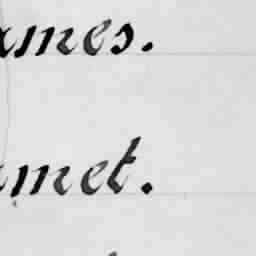 ames.
amet.